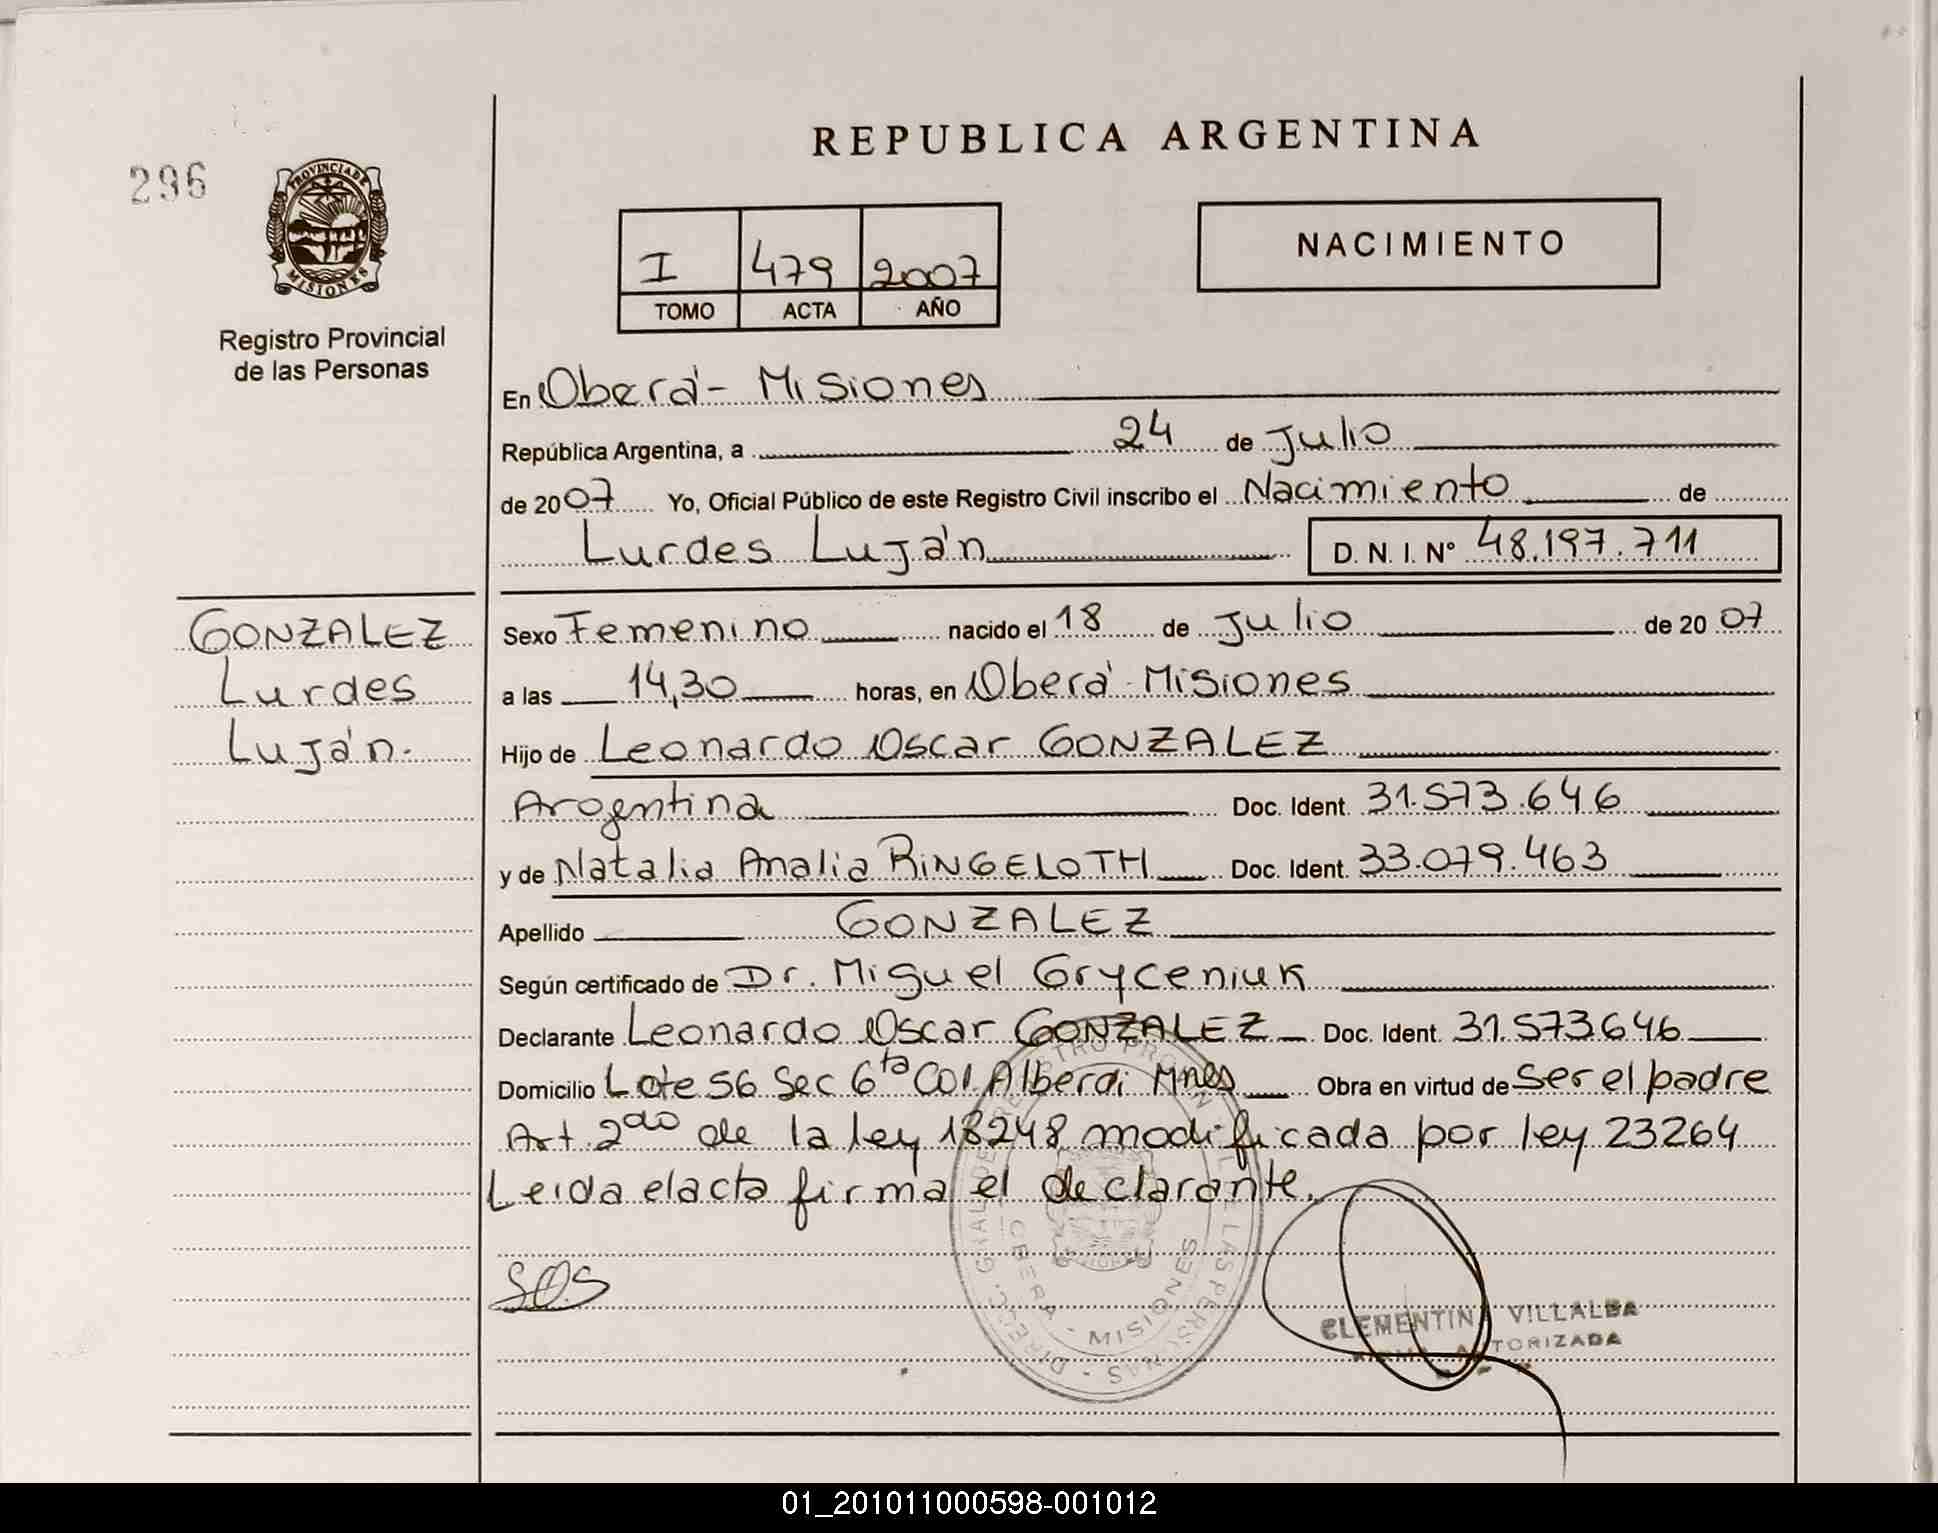 REPUBLICA ARGENTINA
296
PROVINCIA DE
MISIONES
Registro Provincial
de las Personas
I 479 2007
TOMO ACTA AÑO
NACIMIENTO
En Oberá - Misiones
República Argentina, a 24 de Julio
de 2007 Yo, Oficial Público de este Registro Civil inscribo el Nacimiento de
Lurdes Luján D. N. I. Nº 48.197.711
GONZALEZ
Lurdes
Luján.
Sexo Femenino nacido el 18 de Julio de 2007
a las 14,30 horas, en Oberá - Misiones
Hijo de Leonardo Oscar GONZALEZ
Argentina Doc. Ident. 31.573.646
y de Natalia Analia RINGELOTH Doc. Ident. 33.079.463
Apellido GONZALEZ
Según certificado de Dr. Miguel Gryceniuk
Declarante Leonardo Oscar GONZALEZ Doc. Ident. 31.573.646
Domicilio Lote 56 Sec 6ta Col. Alberdi Mnes Obra en virtud de ser el padre
Art. 2do de la ley 18248 modificada por ley 23264
Leida el acta firma el declarante.
OBERA - MISIONES
CLEMENTINA VILLALBA
FIRMA AUTORIZADA
01_201011000598-001012